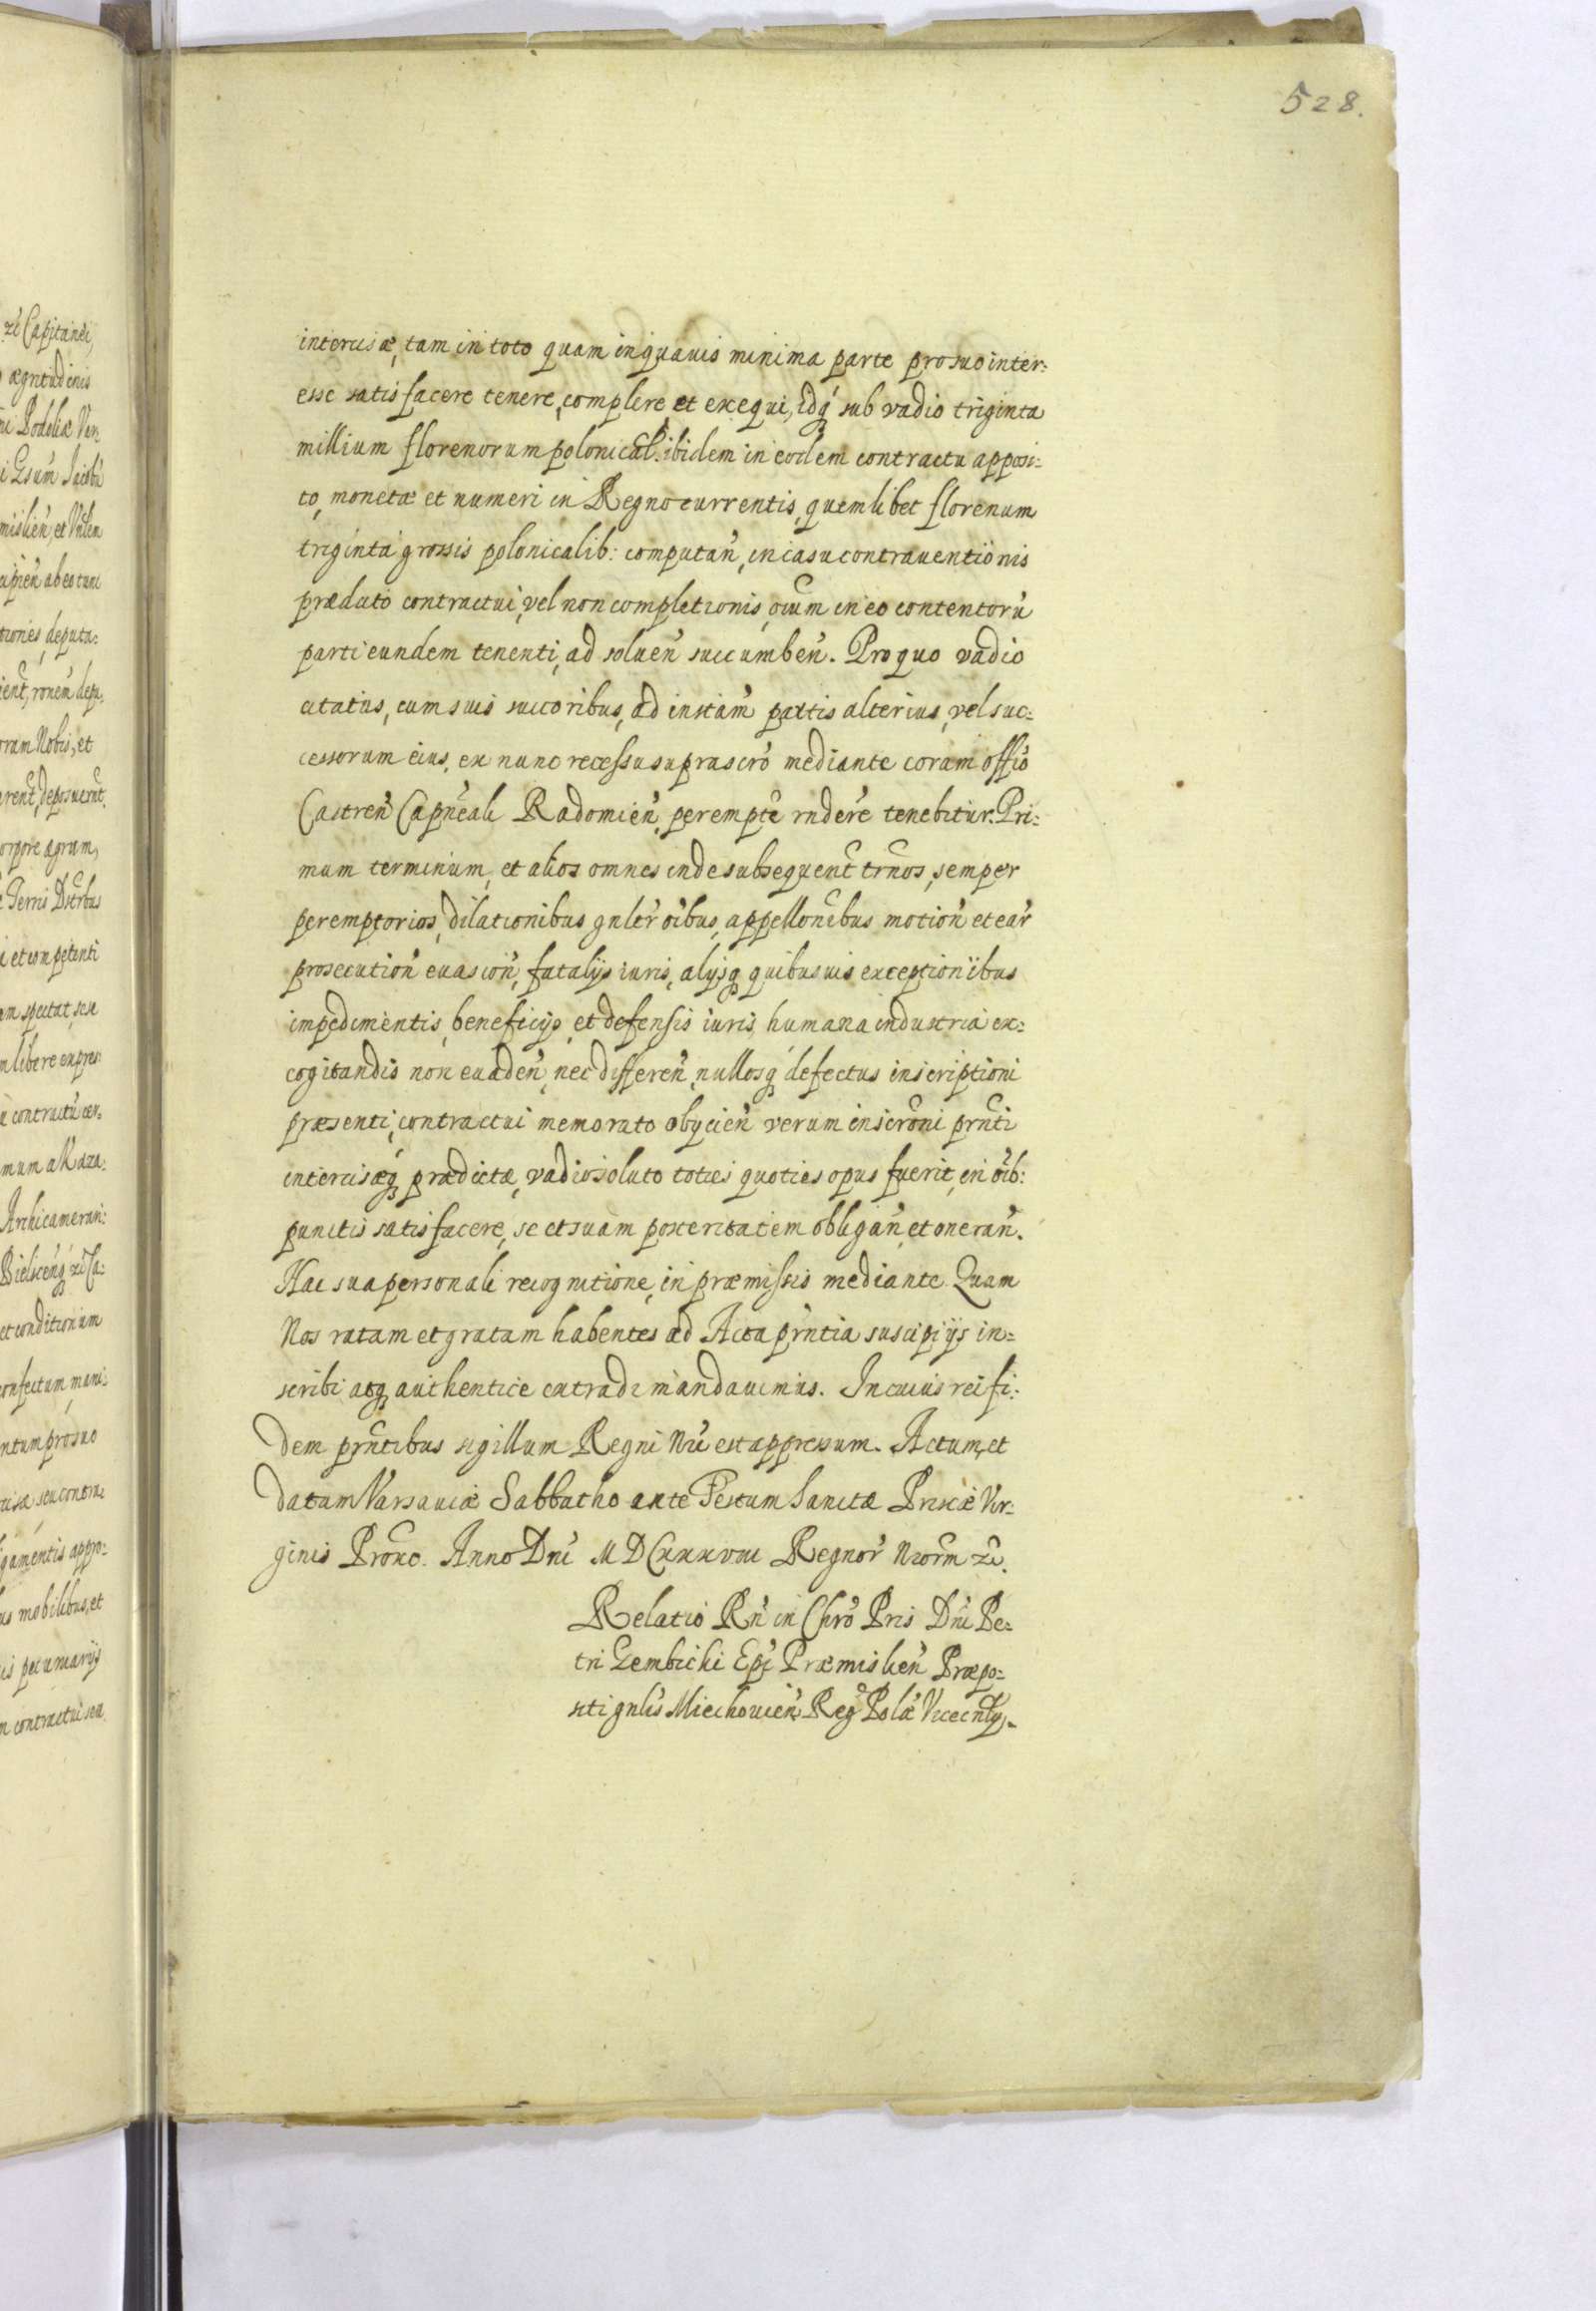 528.
intercisæ, tam in toto quam in quauis minima parte pro suo inter:
esse satisfacere tenere, complere et exequi, idq́ sub vadio triginta
millium florenorum polonicál. ibidem in eodem contractu apposi:
to, monetæ et numeri in Regno currentis, quemlibet florenum
triginta grossis polonicalib: computan̄, in casu contrauentionis
prædicto contractui, vel non completionis oium in eo contentorū
parti eundem tenenti, ad soluen̄ succumben̄. Pro quo vadio
citatus, cum suis succoribus, ad instām partis alterius, vel suc:
cessorum eius, ex nunc recessu suprascrō mediante coram offiō
Castren̄ Capn̄eali Radomien̄, peremptē rndēre tenebitur. Pri:
mum terminum, et alios omnes inde subsequent̄ trn̄os, semper
peremptorios, dilationibus gnlēr oibus, appellonībus motion̄ et ear̄
prosecution̄ euasion̄, fatalijs iuris, alijsq quibusuis exceptionibus
impedimentis, beneficijs, et defensis iuris, humana industria ex:
cogitandis non euaden̄, nec differen̄, nullosq́ defectus inscriptioni
præsenti, contractui memorato obijcien̄ verum inscrōni prn̄ti
intercisæq prædictæ, vadio soluto toties quoties opus fuerit, in oīb:
punctis satisfacere, se et suam posteritatem obligan̄, et oneran̄.
Hac sua personali recognitione, in præmissis mediante. Quam
Nos ratam et gratam habentes ad Acta prn̄tia suscipi ijs in:
scribi atq authentice extradi mandauimus. In cuius rei fi:
dem prn̄tibus sigillum Regni Nrī est appressum. Actum, et
datum Varsauiæ Sabbatho ante Festum Sanctæ Priscæ Vir:
ginis Prōxo. Anno Dnī MDCXXXVIII Regnor̄ Nrōrm
Relatio Rn̄ in Chrō Pris Dnī Pe:
tri Gembicki Epī Præmislien̄ Præpo:
siti gnlīs Miechouien̄ Reg Polæ Vicecnlÿ.
zī Capitanei,
ægritudinis
Podoliæ
Jacobū
mislien̄, et
ab eo tunc
deputa:
ram Nobis, et
deposuerūt
corpore ægrum,
et competenti
spectat, seu
libere expres:
contractū
Archicamerari:
et conditionum
confectum,
pro suo
seu contra:
appro:
mobilibus, et
pecuniarijs
contractui seu